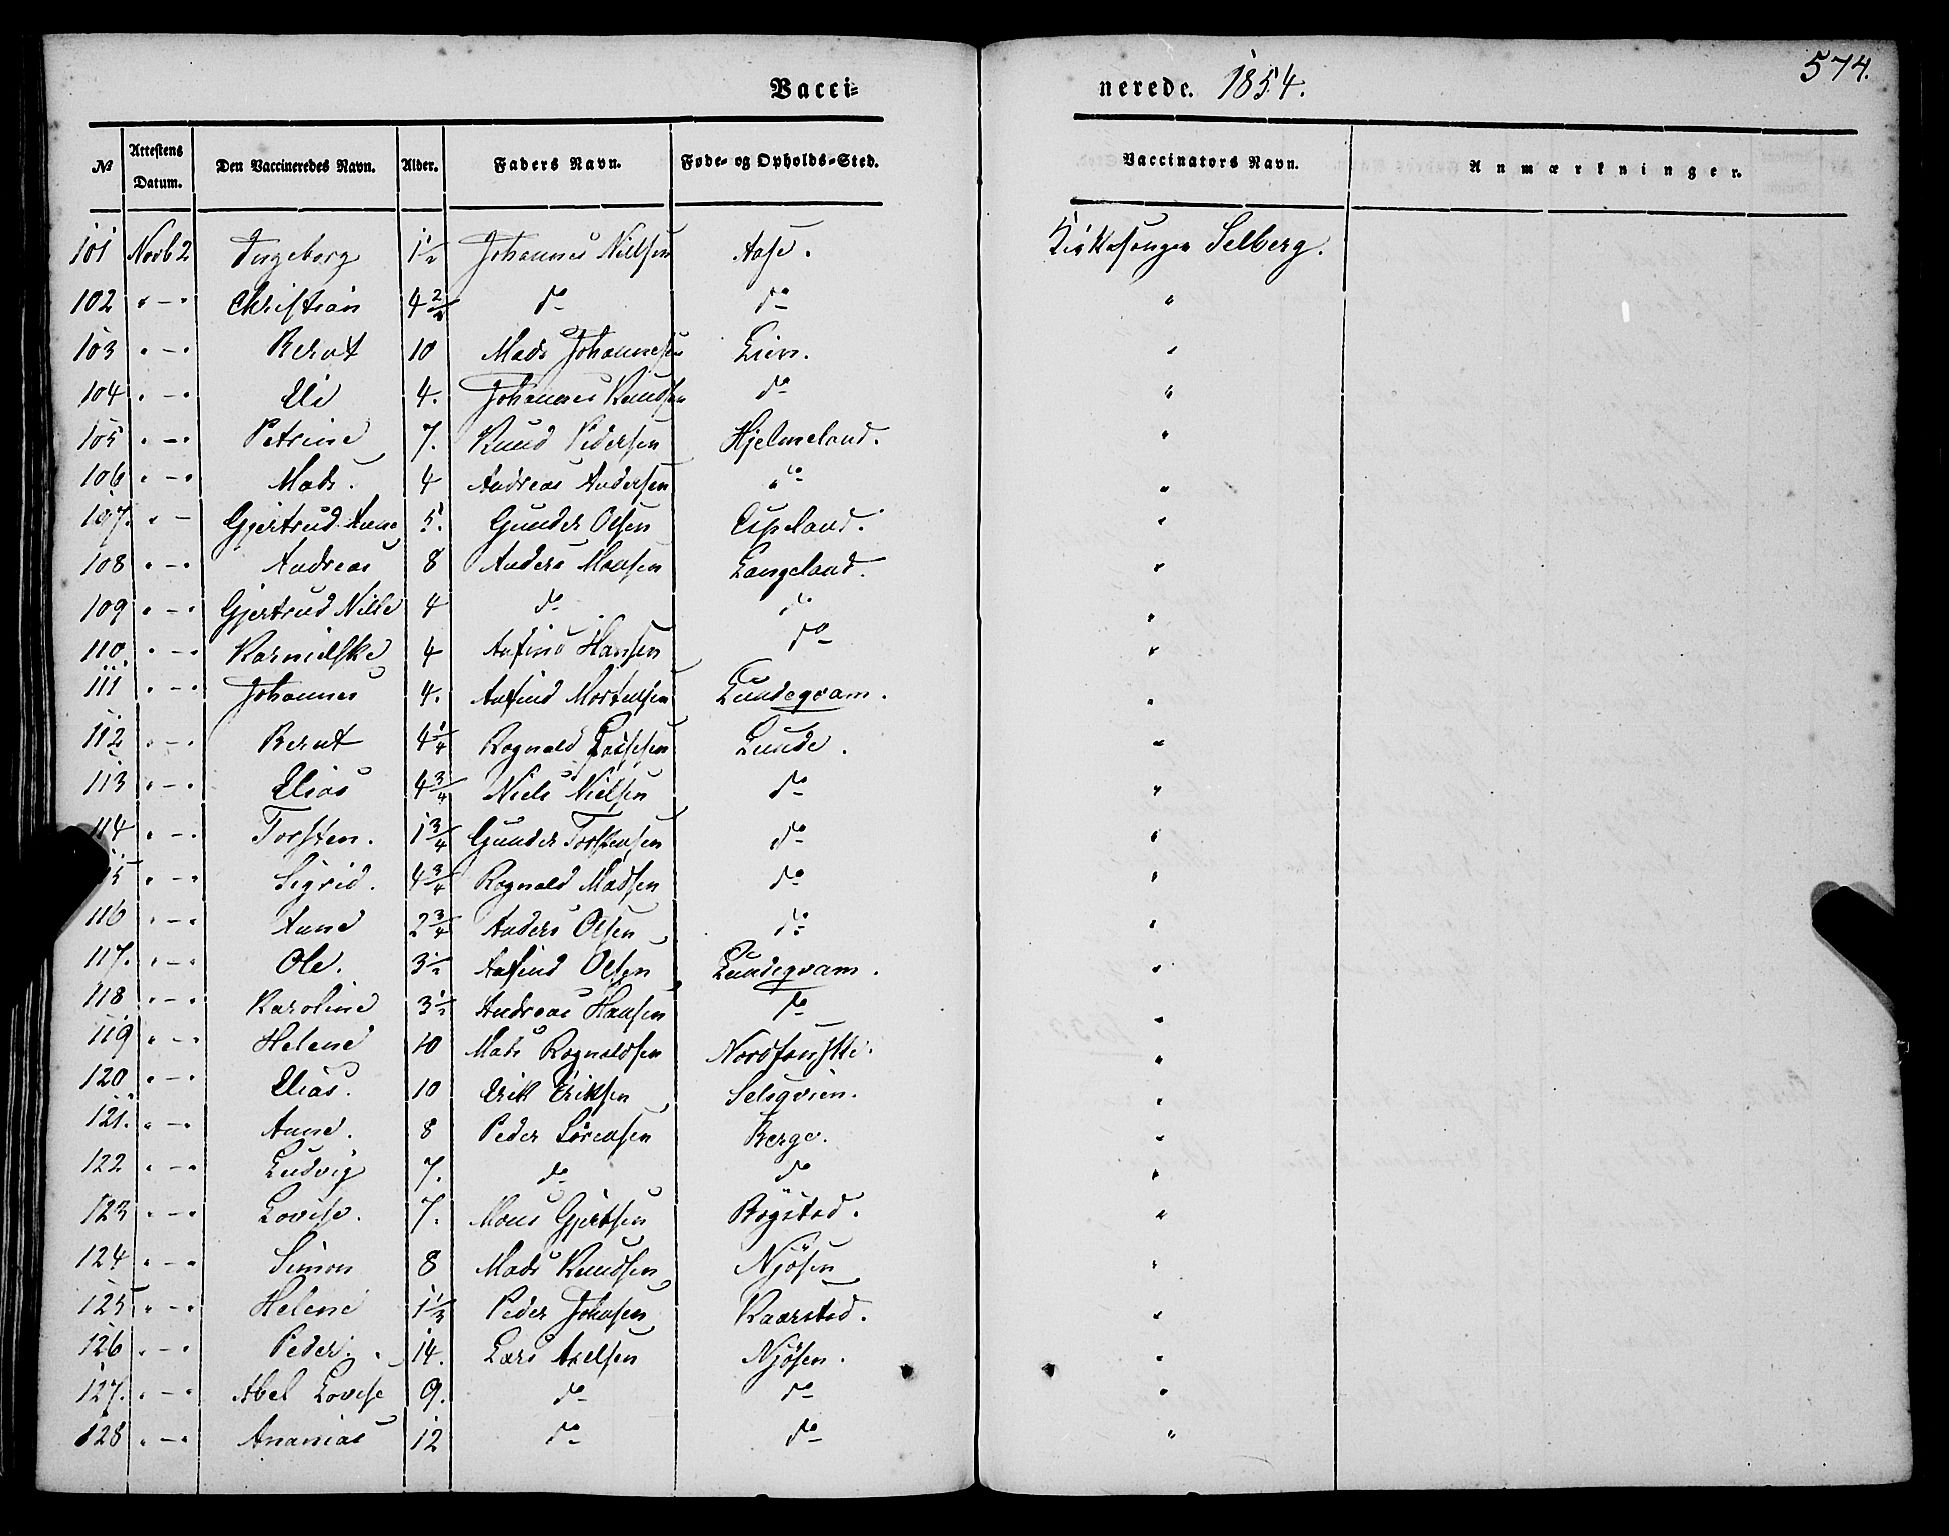 574.
Vacci= nerede. 1854.
№ Attestens Datum. Den Vaccineredes Navn. Alder. Faders Navn. Føde- og Opholds-Sted. Vaccinators Navn. Anmærkninger.
101 Novb 2 Ingeborg 1½ Johannes Nielsen Aase. Kirkesanger Selberg.
102 " - " Christian 4 2/ do do "
103 " - " Bernt 10 Mads Johannesen Lien. "
104 " - " Eli 4. Johannes Knudsen do "
105 " - " Petrine 7. Knud Pedersen Hjelmeland. "
106 " - " Mads. 4 Andreas Andersen do "
107. " - Gjertrud Anne 5. Gunder Olsen Espeland. "
108 " - " Andreas 8 Anders Monsen Langeland. "
109 " - " Gjertrud Nille 4 do do "
110. " - " Karnielske 4 Anfind Hansen do "
111 " - " Johannes 4. Anfind Mortensen Lundeqvam. "
112 " - " Bernt 4¼ Rognald Lassesen Lunde. "
113 " - " Elias 4¾ Niels Nielsen do "
114 " - " Torsten. 1¾ Gunder Torstensen do "
15 " - " Sigrid. 4¾ Rognald Madsen do "
116 " - " Anne 2¾ Anders Olsen do "
117. " - " Ole. 3½ Anfind Olsen Lundeqvam. "
118 " - " Karoline 3½ Andreas Hansen do "
119 " - " Helene 10 Mads Rognaldsen "
120 " - " Elias. 10 Erik Eriksen Selsqvien. "
121. " - " Anne. 8 Peder Sørensen Berge. "
122 " - " Ludvig 7. do do "
123 " - " Lovise. 7. Mons Gjertsen Bögstad. "
124 " - " Simon 8 Mads Knudsen Njösen "
125 " - " Helene 1⅓ Peder Johnsen Kaarstad. "
126 " - " Peder. 14. Lars Axelsen Njösen. "
127. " - " Abel Lovise 9. do do "
128 " - " Ananias 12 do do "